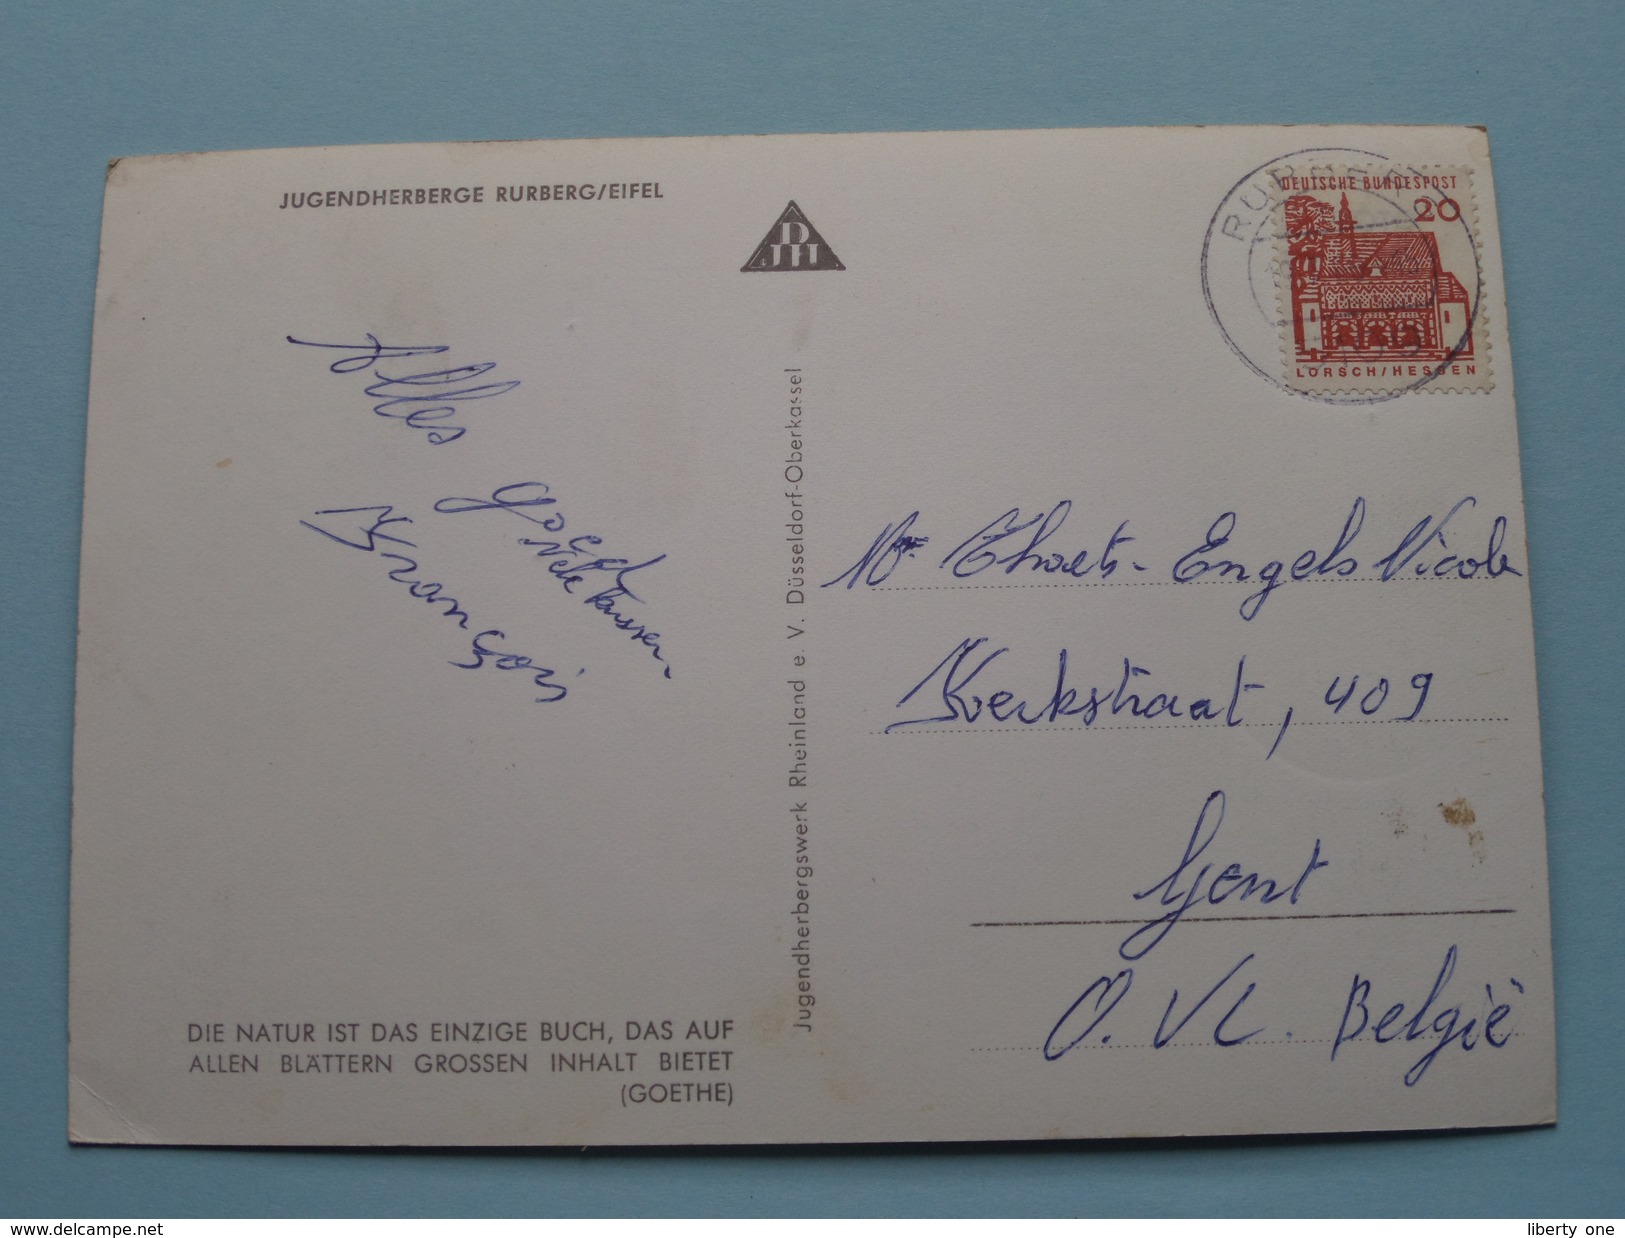 JUGENDHERBERGE RURBERG/EIFEL
DJH
Alles
goed
Nele Janssen
François
DIE NATUR IST DAS EINZIGE BUCH, DAS AUF
ALLEN BLÄTTERN GROSSEN INHALT BIETET
(GOETHE)
Jugendherbergswerk Rheinland e. V. Düsseldorf-Oberkassel
RURBERG
DEUTSCHE BUNDESPOST
20
LORSCH/HESSEN
Thoets-Engels Nicole
Kerkstraat, 409
Gent
O. VL. België
www.delcampe.net
liberty one